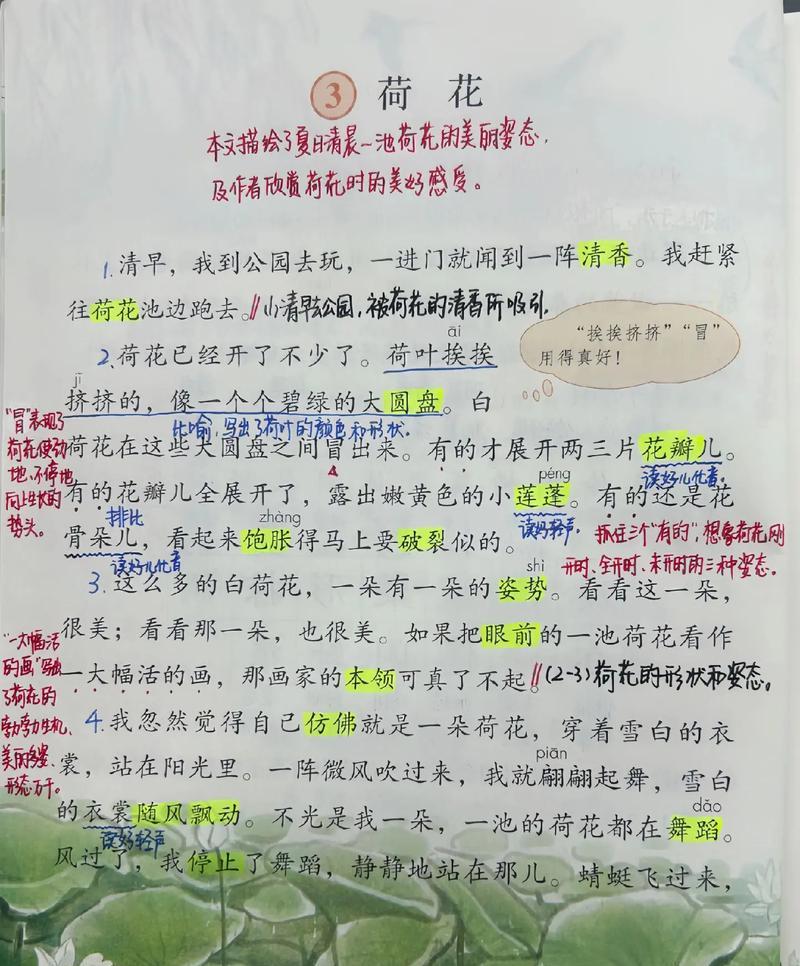 3 荷花
本文描绘了夏日清晨一池荷花的美丽姿态，
及作者欣赏荷花时的美好感受。
1. 清早，我到公园去玩，一进门就闻到一阵清香。我赶紧
往荷花池边跑去。// (1)清早去公园，被荷花的清香所吸引。
“挨挨挤挤”“冒”
用得真好！
āi
2. 荷花已经开了不少了。荷叶挨挨
jǐ
挤挤的，像一个个碧绿的大圆盘。白
比喻，写出了荷叶的颜色和形状。
荷花在这些大圆盘之间冒出来。有的才展开两三片花瓣儿。
读好儿化音。
péng
有的花瓣儿全展开了，露出嫩黄色的小莲蓬。有的还是花
排比
读好轻声。
zhàng
骨朵儿，看起来饱胀得马上要破裂似的。
读好儿化音
抓住三个“有的”，想象荷花刚
开时、全开时、未开时的三种姿态。
“冒”表现了
荷花使劲
地、不停地
向上生长的
势头。
shì
3. 这么多的白荷花，一朵有一朵的姿势。看看这一朵，
很美；看看那一朵，也很美。如果把眼前的一池荷花看作
一大幅活的画，那画家的本领可真了不起。// (2-3)荷花的形状和姿态。
“一大幅活
的画”写出
了荷花的
勃勃生机、
美丽多姿、
形态万千。
4. 我忽然觉得自己仿佛就是一朵荷花，穿着雪白的衣
piān
裳，站在阳光里。一阵微风吹过来，我就翩翩起舞，雪白
dǎo
的衣裳随风飘动。不光是我一朵，一池的荷花都在舞蹈。
读好轻声
风过了，我停止了舞蹈，静静地站在那儿。蜻蜓飞过来，